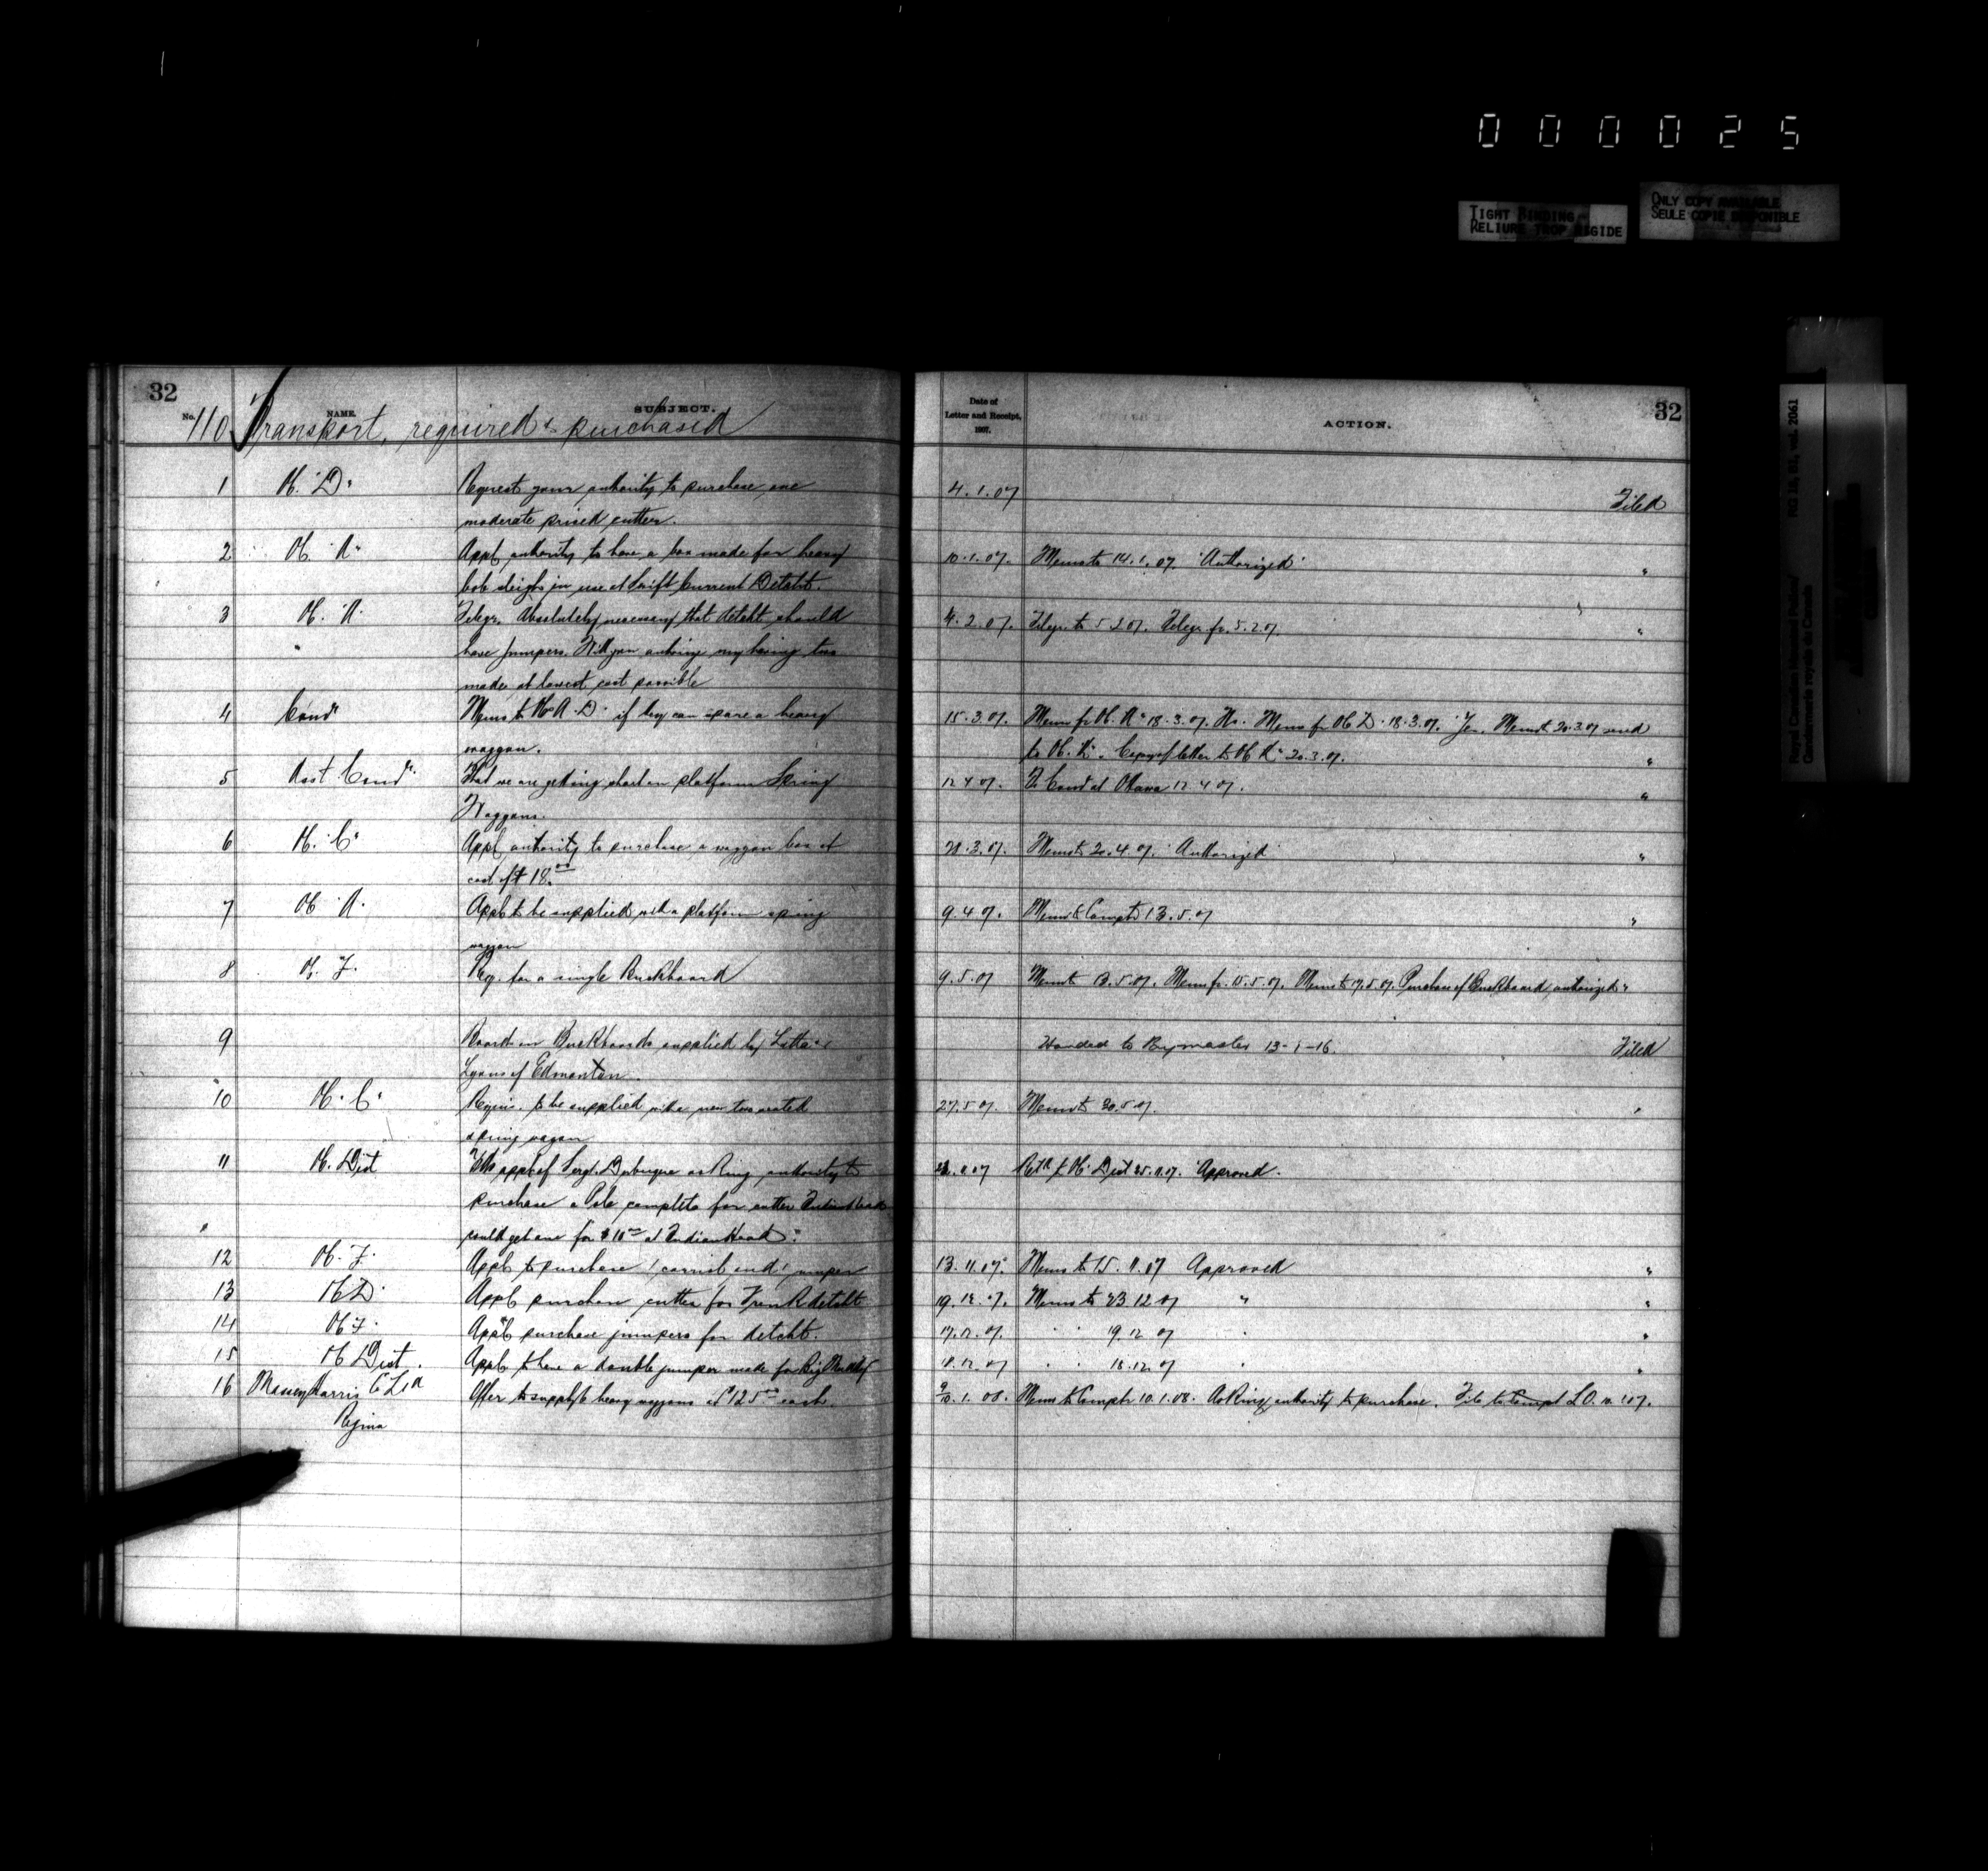 000025
TIGHT BINDING
RELIURE TROP RIGIDE
ONLY COPY AVAILABLE
SEULE COPIE DISPONIBLE
Royal Canadian Mounted Police/ RG 18, B1, vol. 2061
Gendarmerie royale du Canada
32
No. NAME. SUBJECT.
110 Transport, required & purchased
Date of
Letter and Receipt,
1907.
ACTION.
32
1 "D" Request your authority to purchase one 4.1.07 Filed
moderate priced cutter.
2 "A" Appl. authority to have a box made for heavy 10.1.07. Memo to 14.1.07. "Authorized" "
bob sleighs in use at Swift Current Detcht.
3 "A" Telegr. Absolutely necessary that detcht should 4.2.07. Telegr. to 5.2.07. Telegr. fr. 5.2.07. "
" have jumpers. Will you authorize my having two
made at lowest cost possible
4 Comr Memo to "A" "D" if they can spare a heavy 15.3.07. Memo fr "A" 18.3.07. No. Memo fr "D" 18.3.07. Yes. Memo to 20.3.07 send
waggon. to "A". Copy of letter to "A" 20.3.07. "
5 Asst Comr. That we are getting short on platform Spring 12.4.07. To Comr at Ottawa 12.4.07. "
Waggons.
6 "C" Appl. authority to purchase a waggon box at Memo to 20.4.07. "Authorized" "
cost of $18.00
7 "A" Appl. to be supplied with a platform spring 9.4.07. Memo to Compt 13.5.07 "
waggon
8 "F" Req. for a single Buckboard 9.5.07 Memo to 13.5.07. Memo fr. 15.5.07. Memo to 17.5.07. Purchase of Buckboard authorized "
9 Board on Buckboards supplied by Latta &
Lyons of Edmonton. Handed to Qrmaster 13-1-16. Filed
10 "C" Requis. to be supplied with a new two seated 27.5.07. Memo to 30.5.07. "
spring wagon
11 Dist appl. of Sergt. Dubuque asking authority to Dist 25.11.07. "Approved".
purchase a Pole complete for cutter Indian Head
could get one for $10.00 at Indian Head".
12 "F" Appl. to purchase 1 jumper 13.11.07. Memo to 15.11.07 Approved "
13 "D" Appl. purchase cutter for detcht. 19.12.07. Memo to 23.12.07 " "
14 "F" Appl. purchase jumpers for detcht. 17.12.07. " " 19.12.07 " "
15 Dist. Appl. to have a double jumper made for Big Muddy 11.12.07 " " 18.12.07 " "
16 Massey Harris Co Ltd Offer to supply heavy waggons at $125.00 each. 9/10.1.08. Memo to Comptr 10.1.08. Asking authority to purchase. File to Compt
Regina